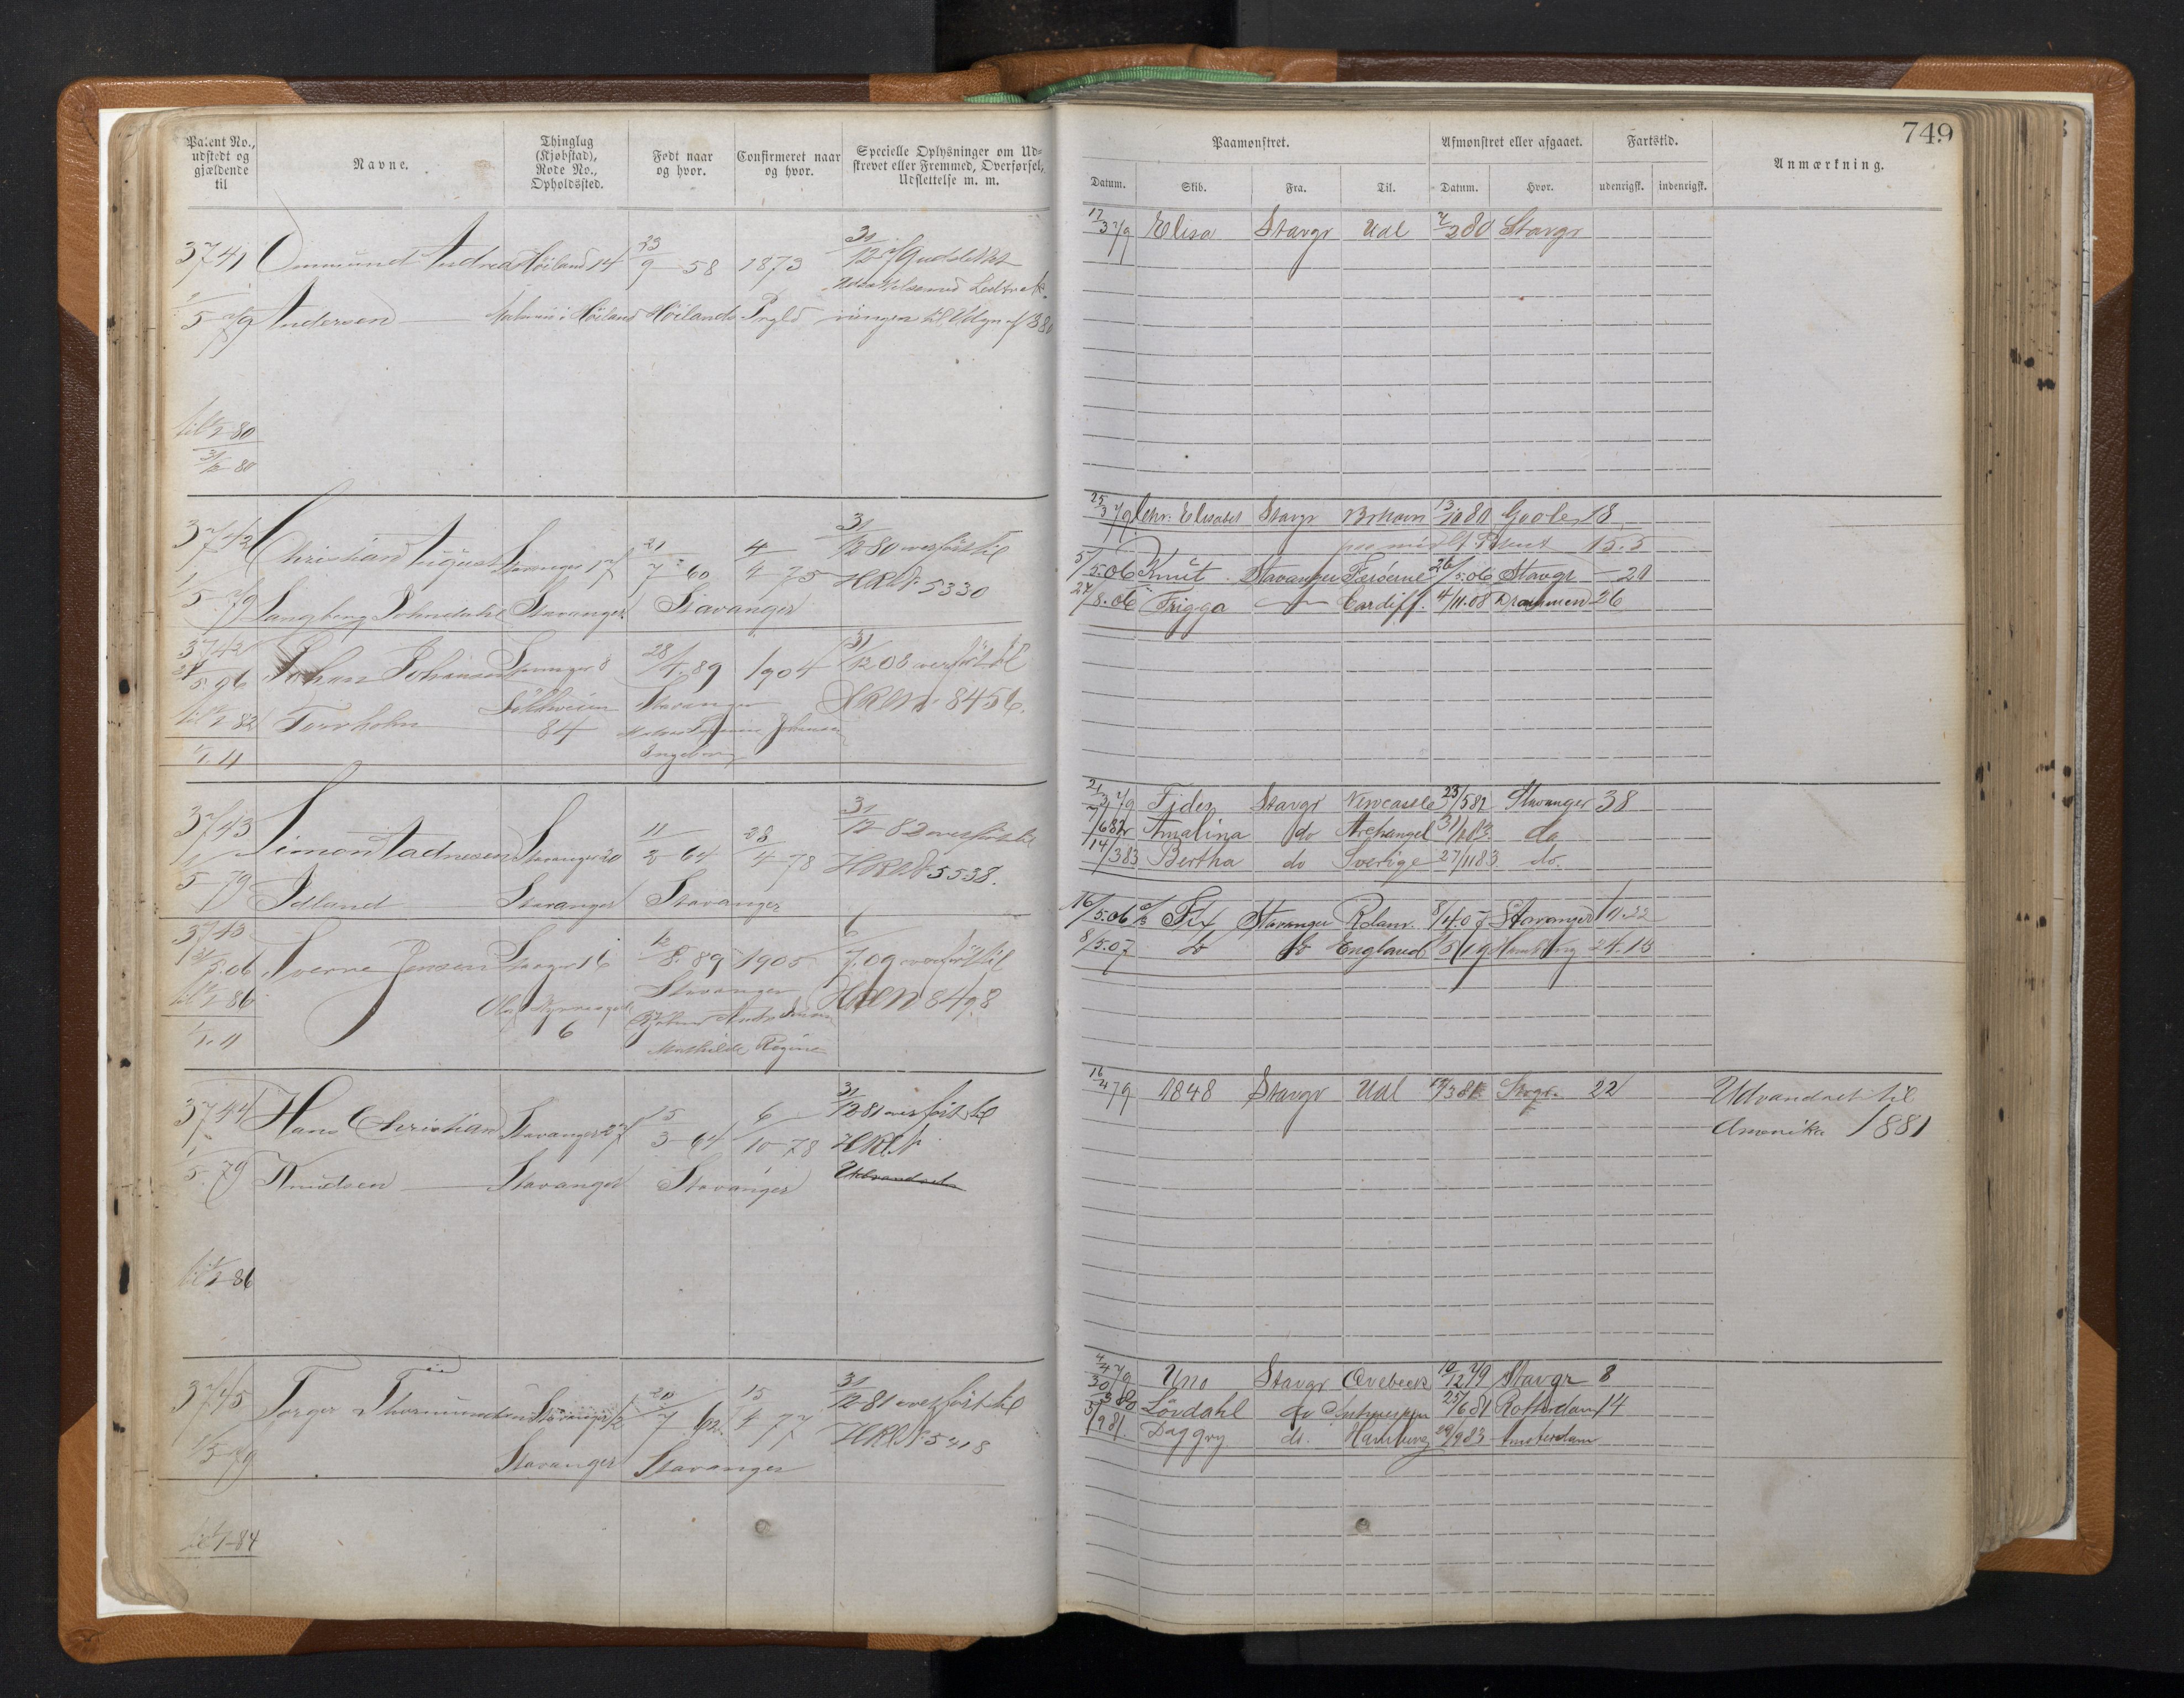 Patent No., udstedt og gjældende til
Navne.
Thinglag (Kjøbstad), Rode No., Opholdssted.
Født naar og hvor.
Confirmeret naar og hvor.
Specielle Oplysninger om Udskrevet eller Fremmed, Overførsel, Udslettelse m. m.
3741 Ommund Andreas Høiland 14 23/9 58 1873 31/12
1/5 79 Andersen Høiland Høilands
til 1/1 80
31/12 80
3742 Christian August Stavanger 17 21/7 60 4/4 75 31/12 80 overført til
1/5 79 Langberg Stavanger Stavanger HRL№ 5330
3742 Johan Johansen Stavanger 8 28/4.89 1904 31/12 08 overført til
til 1/1 82 Torvholm 84 Stavanger 8456.
Johansen
Ingeborg
1/1. 11
3743 Simon Tadnesen Stavanger 20 11/2 64 28/4 78 31/12 82 overført til
1/5 79 Idland Stavanger Stavanger HRL№ 5538.
3743 Sverre Jensen Stavanger 16 12/8. 89 1905 6/7.09 overført til
til 1/1 86 6 Stavanger 8498
1/1. 11 Mathilde Regine
3744 Hans Christian Stavanger 27 5/3 64 6/10 78 31/12 81 overført til
1/5 79 Knudsen Stavanger Stavanger HRL№
Udvandret
til 1/1 86
3745 Torger Thormundsen Stavanger 12 20/7 62. 15/4 77 31/12 81 overført til
1/5 79 Stavanger Stavanger HRL№ 5418
til 1/1 84
749
Paamønstret.
Afmønstret eller afgaaet.
Fartstid.
Anmærkning.
Datum. Skib. Fra. Til. Datum. Hvor. udenrigsk. indenrigsk.
17/3 79 Elisa Stavgr Udl 7/2 80 Stavgr
25/3 79 Chr: Elisabet Stavgr 13/10 80 Goole 18
15.5
5/5.06 Knut Stavanger Færöerne 26/5.06 Stavgr 20
24/8.06 Frigga Cardiff. 4/11.08 Drammen 26
21/3 79 Fides Stavgr Newcastle 23/5 82 Stavanger 38
7/6 82 Amalina do Archangel do
14/3 83 Bertha do Sverige 27/11 83 do.
16/5.06 Fix Stavanger 8/4.07 Stavanger 10.22
8/5.07 do do England Hamburg
16/4 79 1848 Stavgr Udl Svgr. 22 Udvandret til
Amerika 1881
4/4 79 Uno Stavgr 10/12 79 Stavgr 8
30/3 80 Lövdahl do Antwerpen 25/6 81 Rotterdam 14
5/9 81. Daggry do. Hamburg 29/9 83 Amsterdam